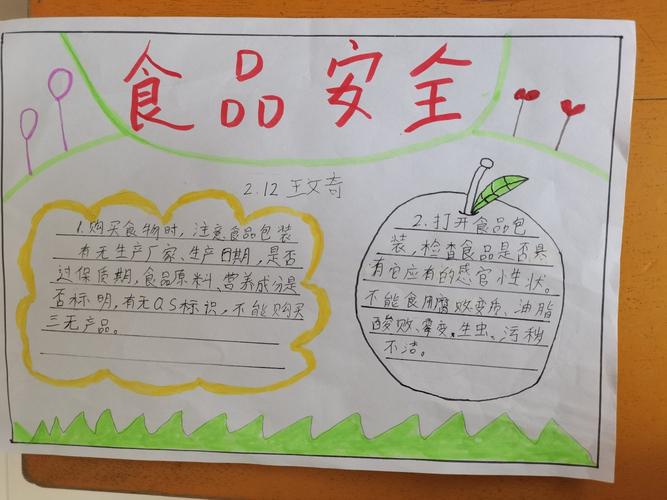 食品安全
2.12 王文奇
1.购买食物时，注意食品包装
有无生产厂家、生产日期，是否
过保质期，食品原料、营养成分是
否标明，有无QS标识，不能购买
三无产品。
2.打开食品包
装，检查食品是否具
有它应有的感官性状。
不能食用腐败变质、油脂
酸败、霉变、生虫、污秽
不洁。